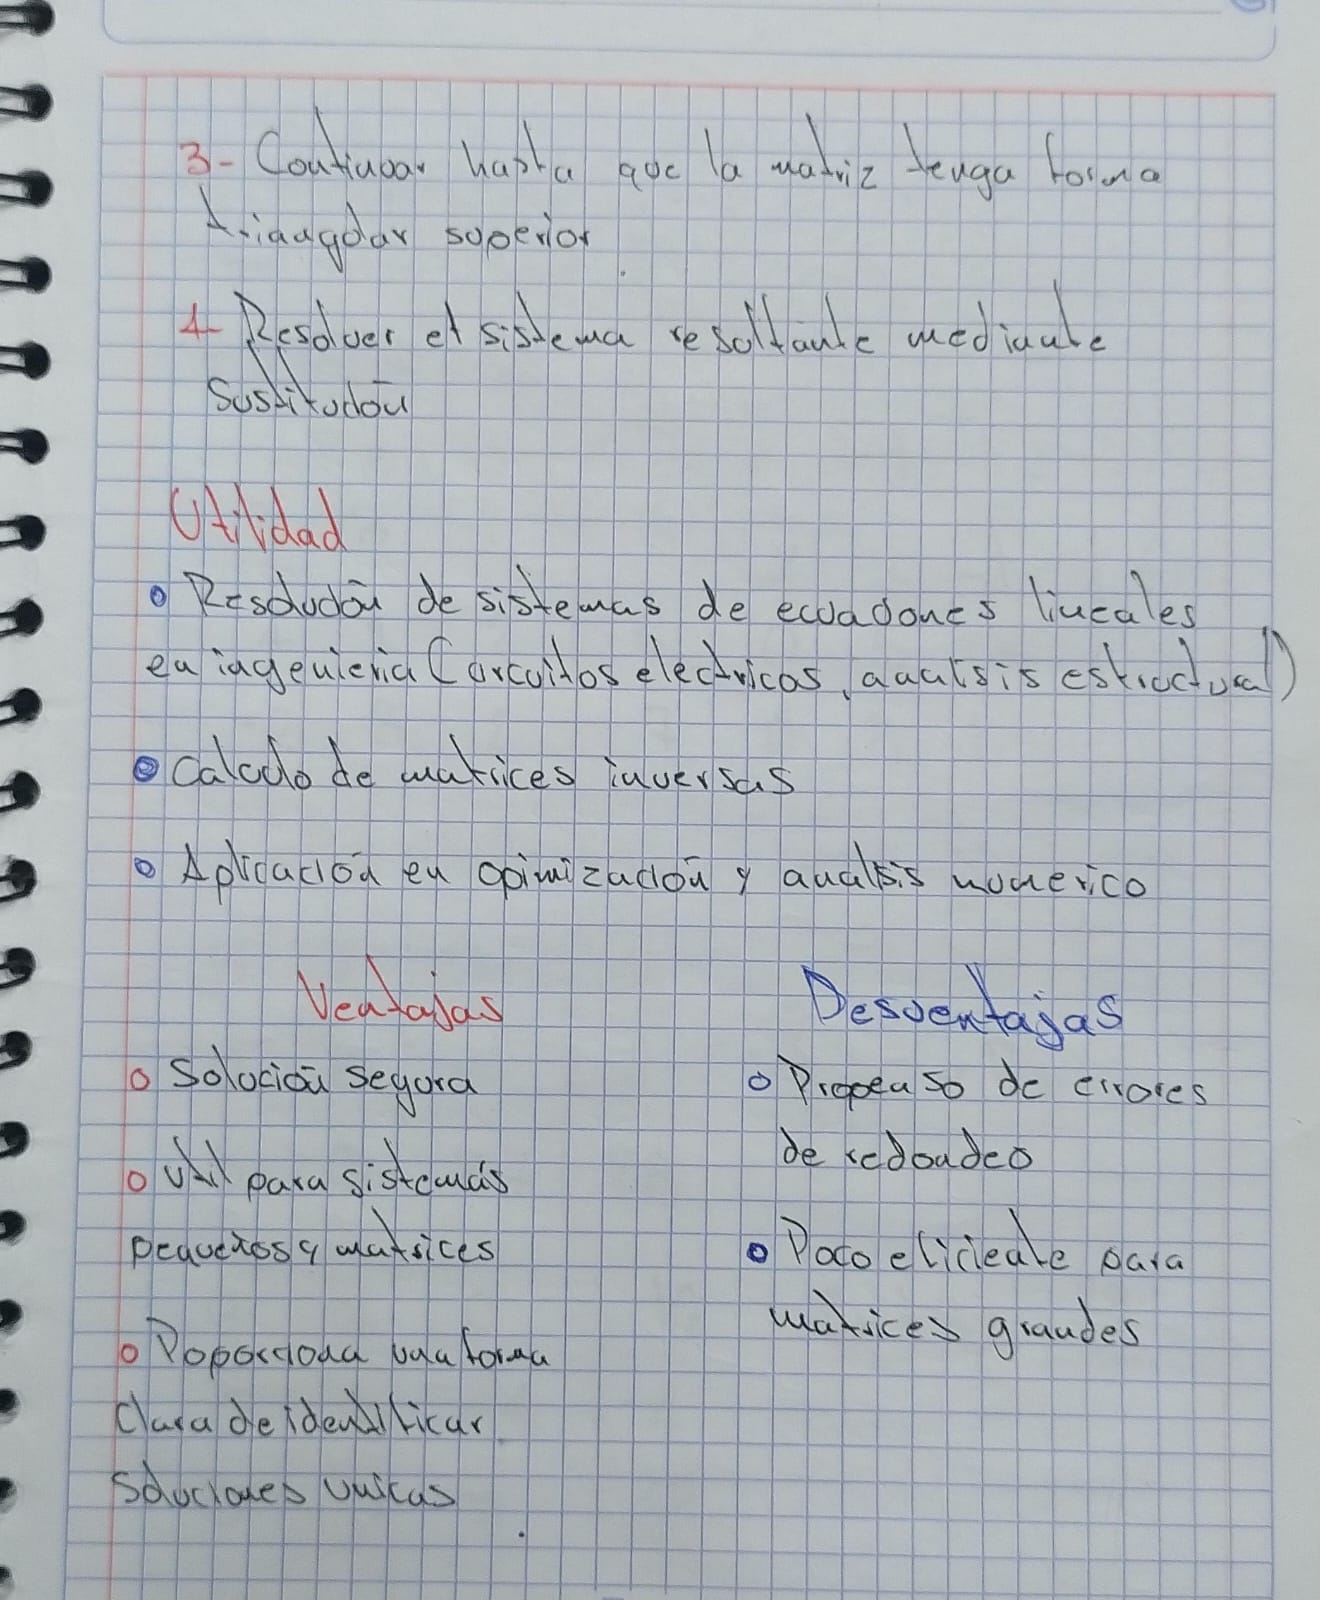 3- Continuar hasta que la matriz tenga forma
triangular superior
4- Resolver el sistema resultante mediante
Sustitución
Utilidad
Resolución de sistemas de ecuaciones lineales
en ingenieria (circuitos electricos, analisis estructural)
Calculo de matrices inversas
Aplicación en opimización y analisis numerico
Ventajas
Solución segura
Util para sistemas
pequeños y matrices
Poporciona una forma
Clara de identificar
Soluciones unicas
Desventajas
Propenso de errores
de redondeo
Poco eficiente para
matrices grandes